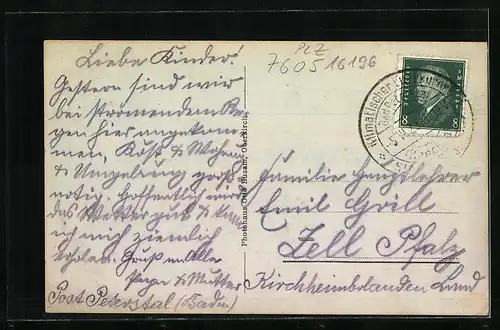 Liebe Kinder!
Gestern sind wir
bei strömendem Re-
gen hier angekom-
men, Kost & Wohnung
& Umgebung groß-
artig. Hoffentlich wird
das Wetter gut & kann
ich mich ziemlich
erholen. Gruß an Alle
Papa & Mutter
Post Peterstal (Baden)
Photohaus Otto Busam, Oberkirch
PLZ
7605 16196
Klimatischer
8 8
Familie Hauptlehrer
Emil Grill
Zell Pfalz
Kirchheimbolanden Land